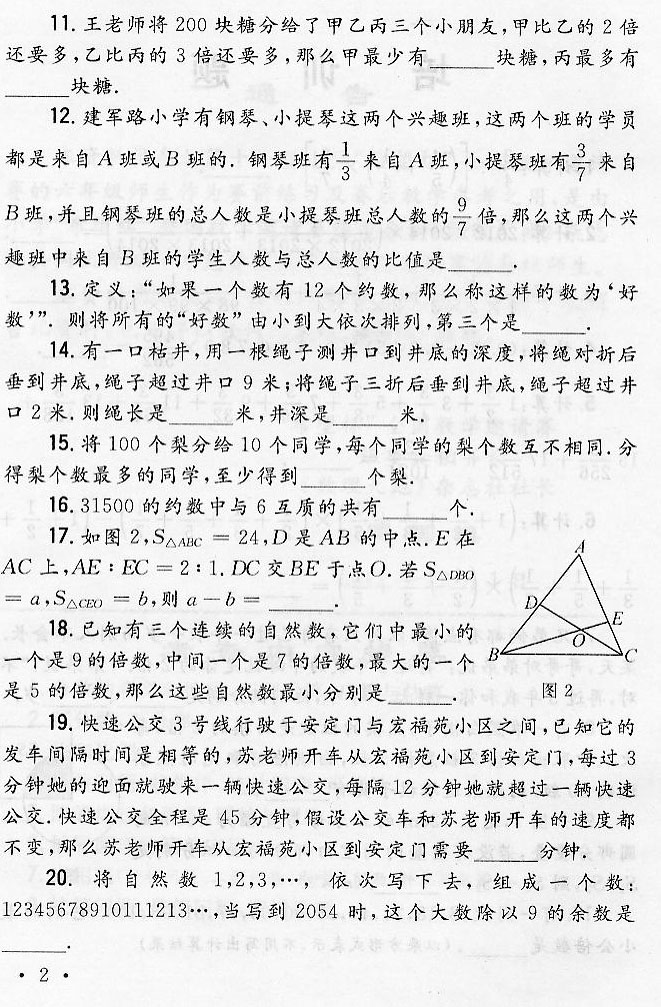 11. 王老师将 200 块糖分给了甲乙丙三个小朋友,甲比乙的 2 倍
还要多,乙比丙的 3 倍还要多,那么甲最少有______块糖,丙最多有
______块糖.
12. 建军路小学有钢琴、小提琴这两个兴趣班,这两个班的学员
都是来自 A 班或 B 班的. 钢琴班有 1/3 来自 A 班,小提琴班有 3/7 来自
B 班,并且钢琴班的总人数是小提琴班总人数的 9/7 倍,那么这两个兴
趣班中来自 B 班的学生人数与总人数的比值是______.
13. 定义:“如果一个数有 12 个约数,那么称这样的数为‘好
数’”. 则将所有的“好数”由小到大依次排列,第三个是______.
14. 有一口枯井,用一根绳子测井口到井底的深度,将绳对折后
垂到井底,绳子超过井口 9 米;将绳子三折后垂到井底,绳子超过井
口 2 米. 则绳长是______米,井深是______米.
15. 将 100 个梨分给 10 个同学,每个同学的梨个数互不相同. 分
得梨个数最多的同学,至少得到______个梨.
16. 31500 的约数中与 6 互质的共有______个.
17. 如图 2,S△ABC = 24,D 是 AB 的中点. E 在
AC 上,AE : EC = 2 : 1. DC 交 BE 于点 O. 若 S△DBO
= a,S△CEO = b,则 a − b = ______.
A
D
E
O
B
C
图 2
18. 已知有三个连续的自然数,它们中最小的
一个是 9 的倍数,中间一个是 7 的倍数,最大的一个
是 5 的倍数,那么这些自然数最小分别是______.
19. 快速公交 3 号线行驶于安定门与宏福苑小区之间,已知它的
发车间隔时间是相等的,苏老师开车从宏福苑小区到安定门,每过 3
分钟她的迎面就驶来一辆快速公交,每隔 12 分钟她就超过一辆快速
公交. 快速公交全程是 45 分钟,假设公交车和苏老师开车的速度都
不变,那么苏老师开车从宏福苑小区到安定门需要______分钟.
20. 将自然数 1,2,3,…,依次写下去,组成一个数:
12345678910111213…,当写到 2054 时,这个大数除以 9 的余数是
______.
• 2 •